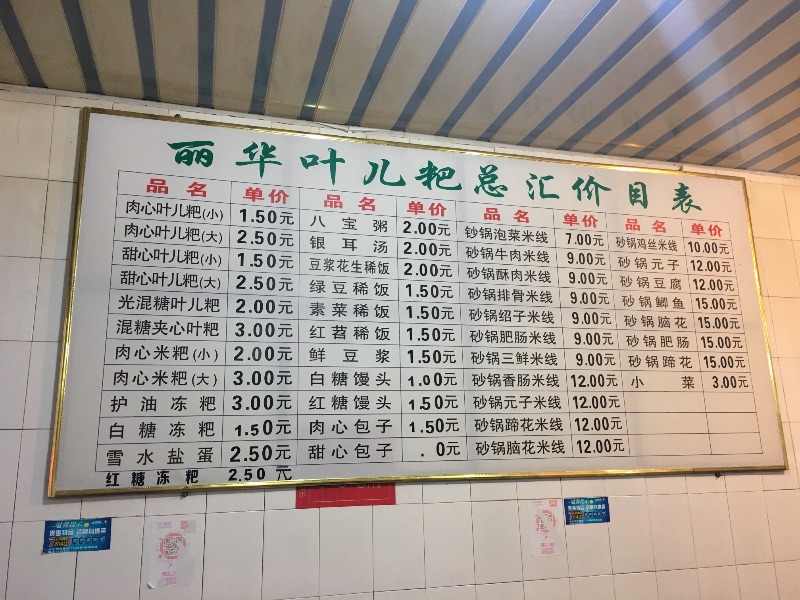 丽华叶儿粑总汇价目表
品名 单价 品名 单价 品名 单价 品名 单价
肉心叶儿粑(小) 1.50元 八宝粥 2.00元 砂锅泡菜米线 7.00元 砂锅鸡丝米线 10.00元
肉心叶儿粑(大) 2.50元 银耳汤 2.00元 砂锅牛肉米线 9.00元 砂锅元子 12.00元
甜心叶儿粑(小) 1.50元 豆浆花生稀饭 2.00元 砂锅酥肉米线 9.00元 砂锅豆腐 12.00元
甜心叶儿粑(大) 2.50元 绿豆稀饭 1.50元 砂锅排骨米线 9.00元 砂锅鲫鱼 15.00元
光混糖叶儿粑 2.00元 素菜稀饭 1.50元 砂锅绍子米线 9.00元 砂锅脑花 15.00元
混糖夹心叶粑 3.00元 红苕稀饭 1.50元 砂锅肥肠米线 9.00元 砂锅肥肠 15.00元
肉心米粑(小) 2.00元 鲜豆浆 1.50元 砂锅三鲜米线 9.00元 砂锅蹄花 15.00元
肉心米粑(大) 3.00元 白糖馒头 1.00元 砂锅香肠米线 12.00元 小菜 3.00元
护油冻粑 3.00元 红糖馒头 1.50元 砂锅元子米线 12.00元
白糖冻粑 1.50元 肉心包子 1.50元 砂锅蹄花米线 12.00元
雪水盐蛋 2.50元 甜心包子 .0元 砂锅脑花米线 12.00元
红糖冻粑 2.50元